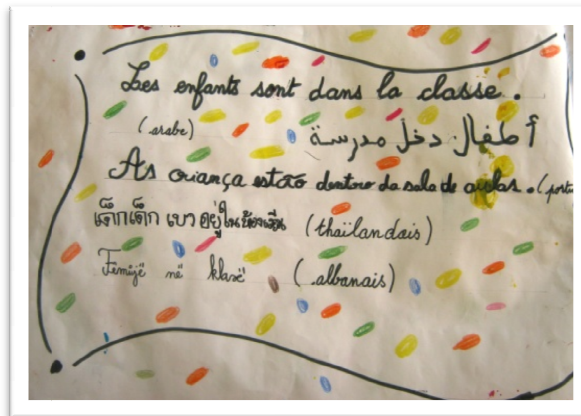 Les enfants sont dans la classe.
(arabe) أطفال دخل مدرسة
As criança estão dentro da sala de aulas. (portu
เด็กเด็ก เขา อยู่ใน (thaïlandais)
Fëmijë në klasë (albanais)